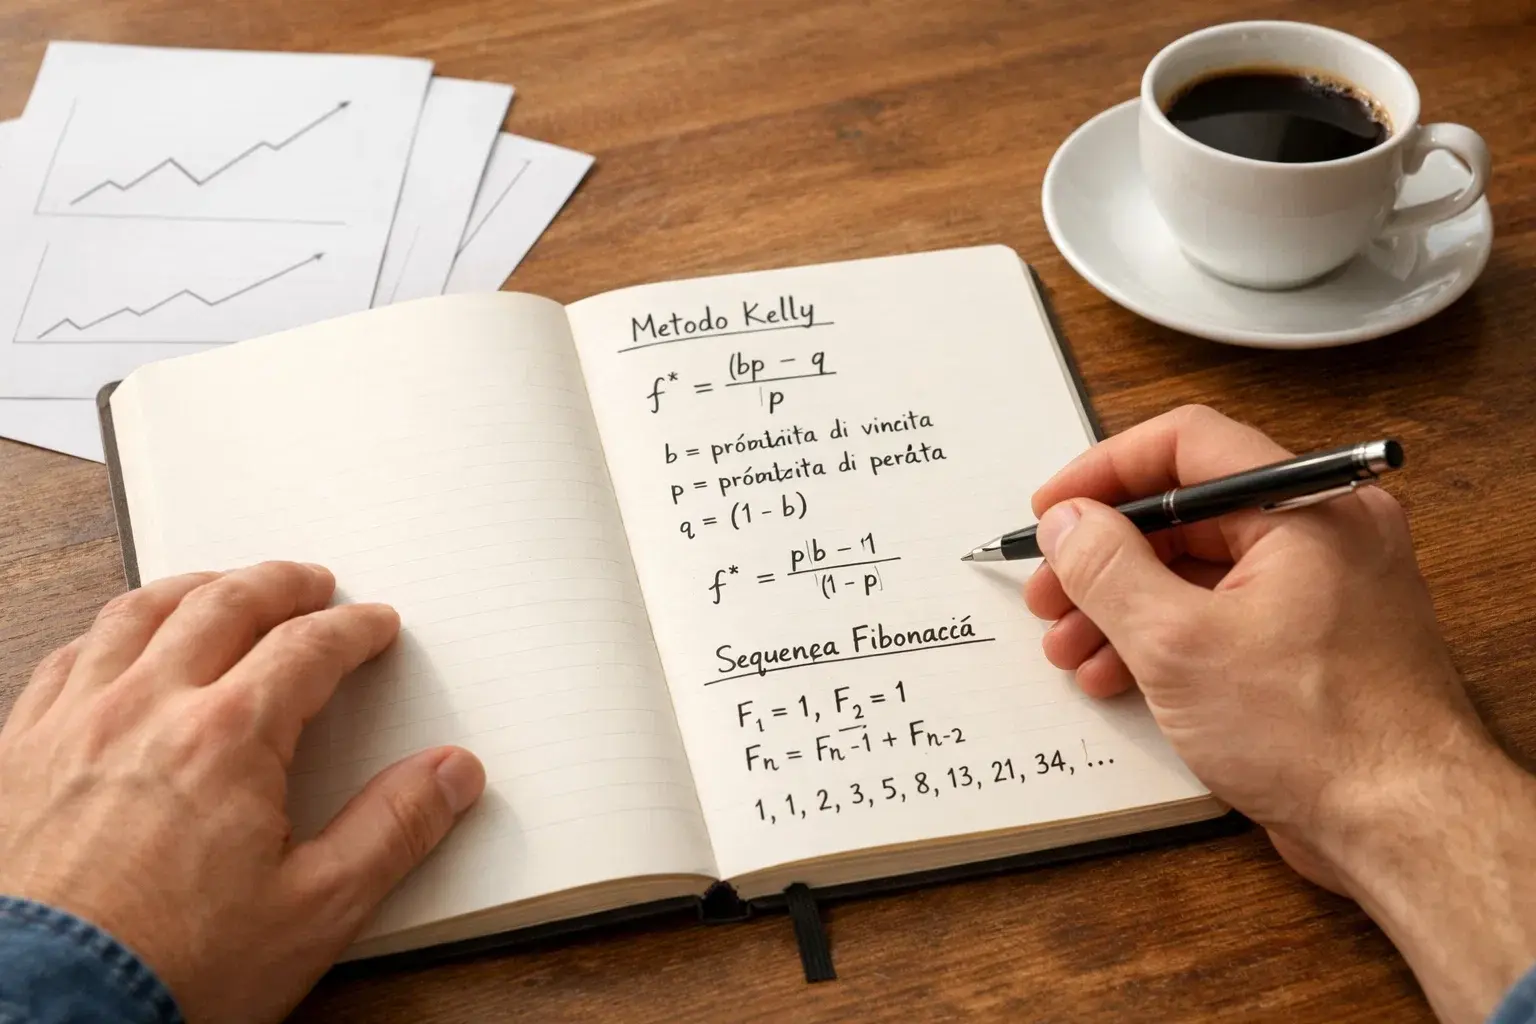 Metodo Kelly
f* = (bp - q / p
b = di vincita
p = di peráta
q = (1 - b)
f* = p|b - 1 / (1 - p)
Sequença Fibonacciá
F1 = 1, F2 = 1
Fn = Fn-1 + Fn-2
1, 1, 2, 3, 5, 8, 13, 21, 34, ...